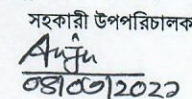 সহকারী উপপরিচালক
Anju
০৪/০৩/২০২১